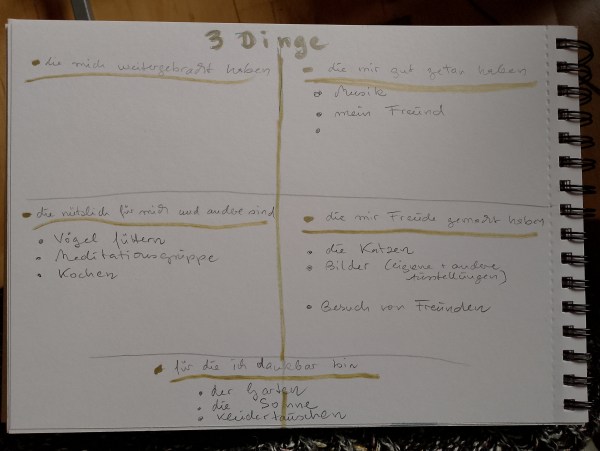 3 Dinge
• die mich weitergebracht haben
• die mir gut getan haben
• Musik
• mein Freund
•
• die nützlich für mich und andere sind
• Vögel füttern
• Meditationsgruppe
• Kochen
• die mir Freude gemacht haben
• die Katzen
• Bilder (eigene + andere
Ausstellungen)
• Besuch von Freunden
• für die ich dankbar bin
• der Garten
• die Sonne
• Kleidertauschen